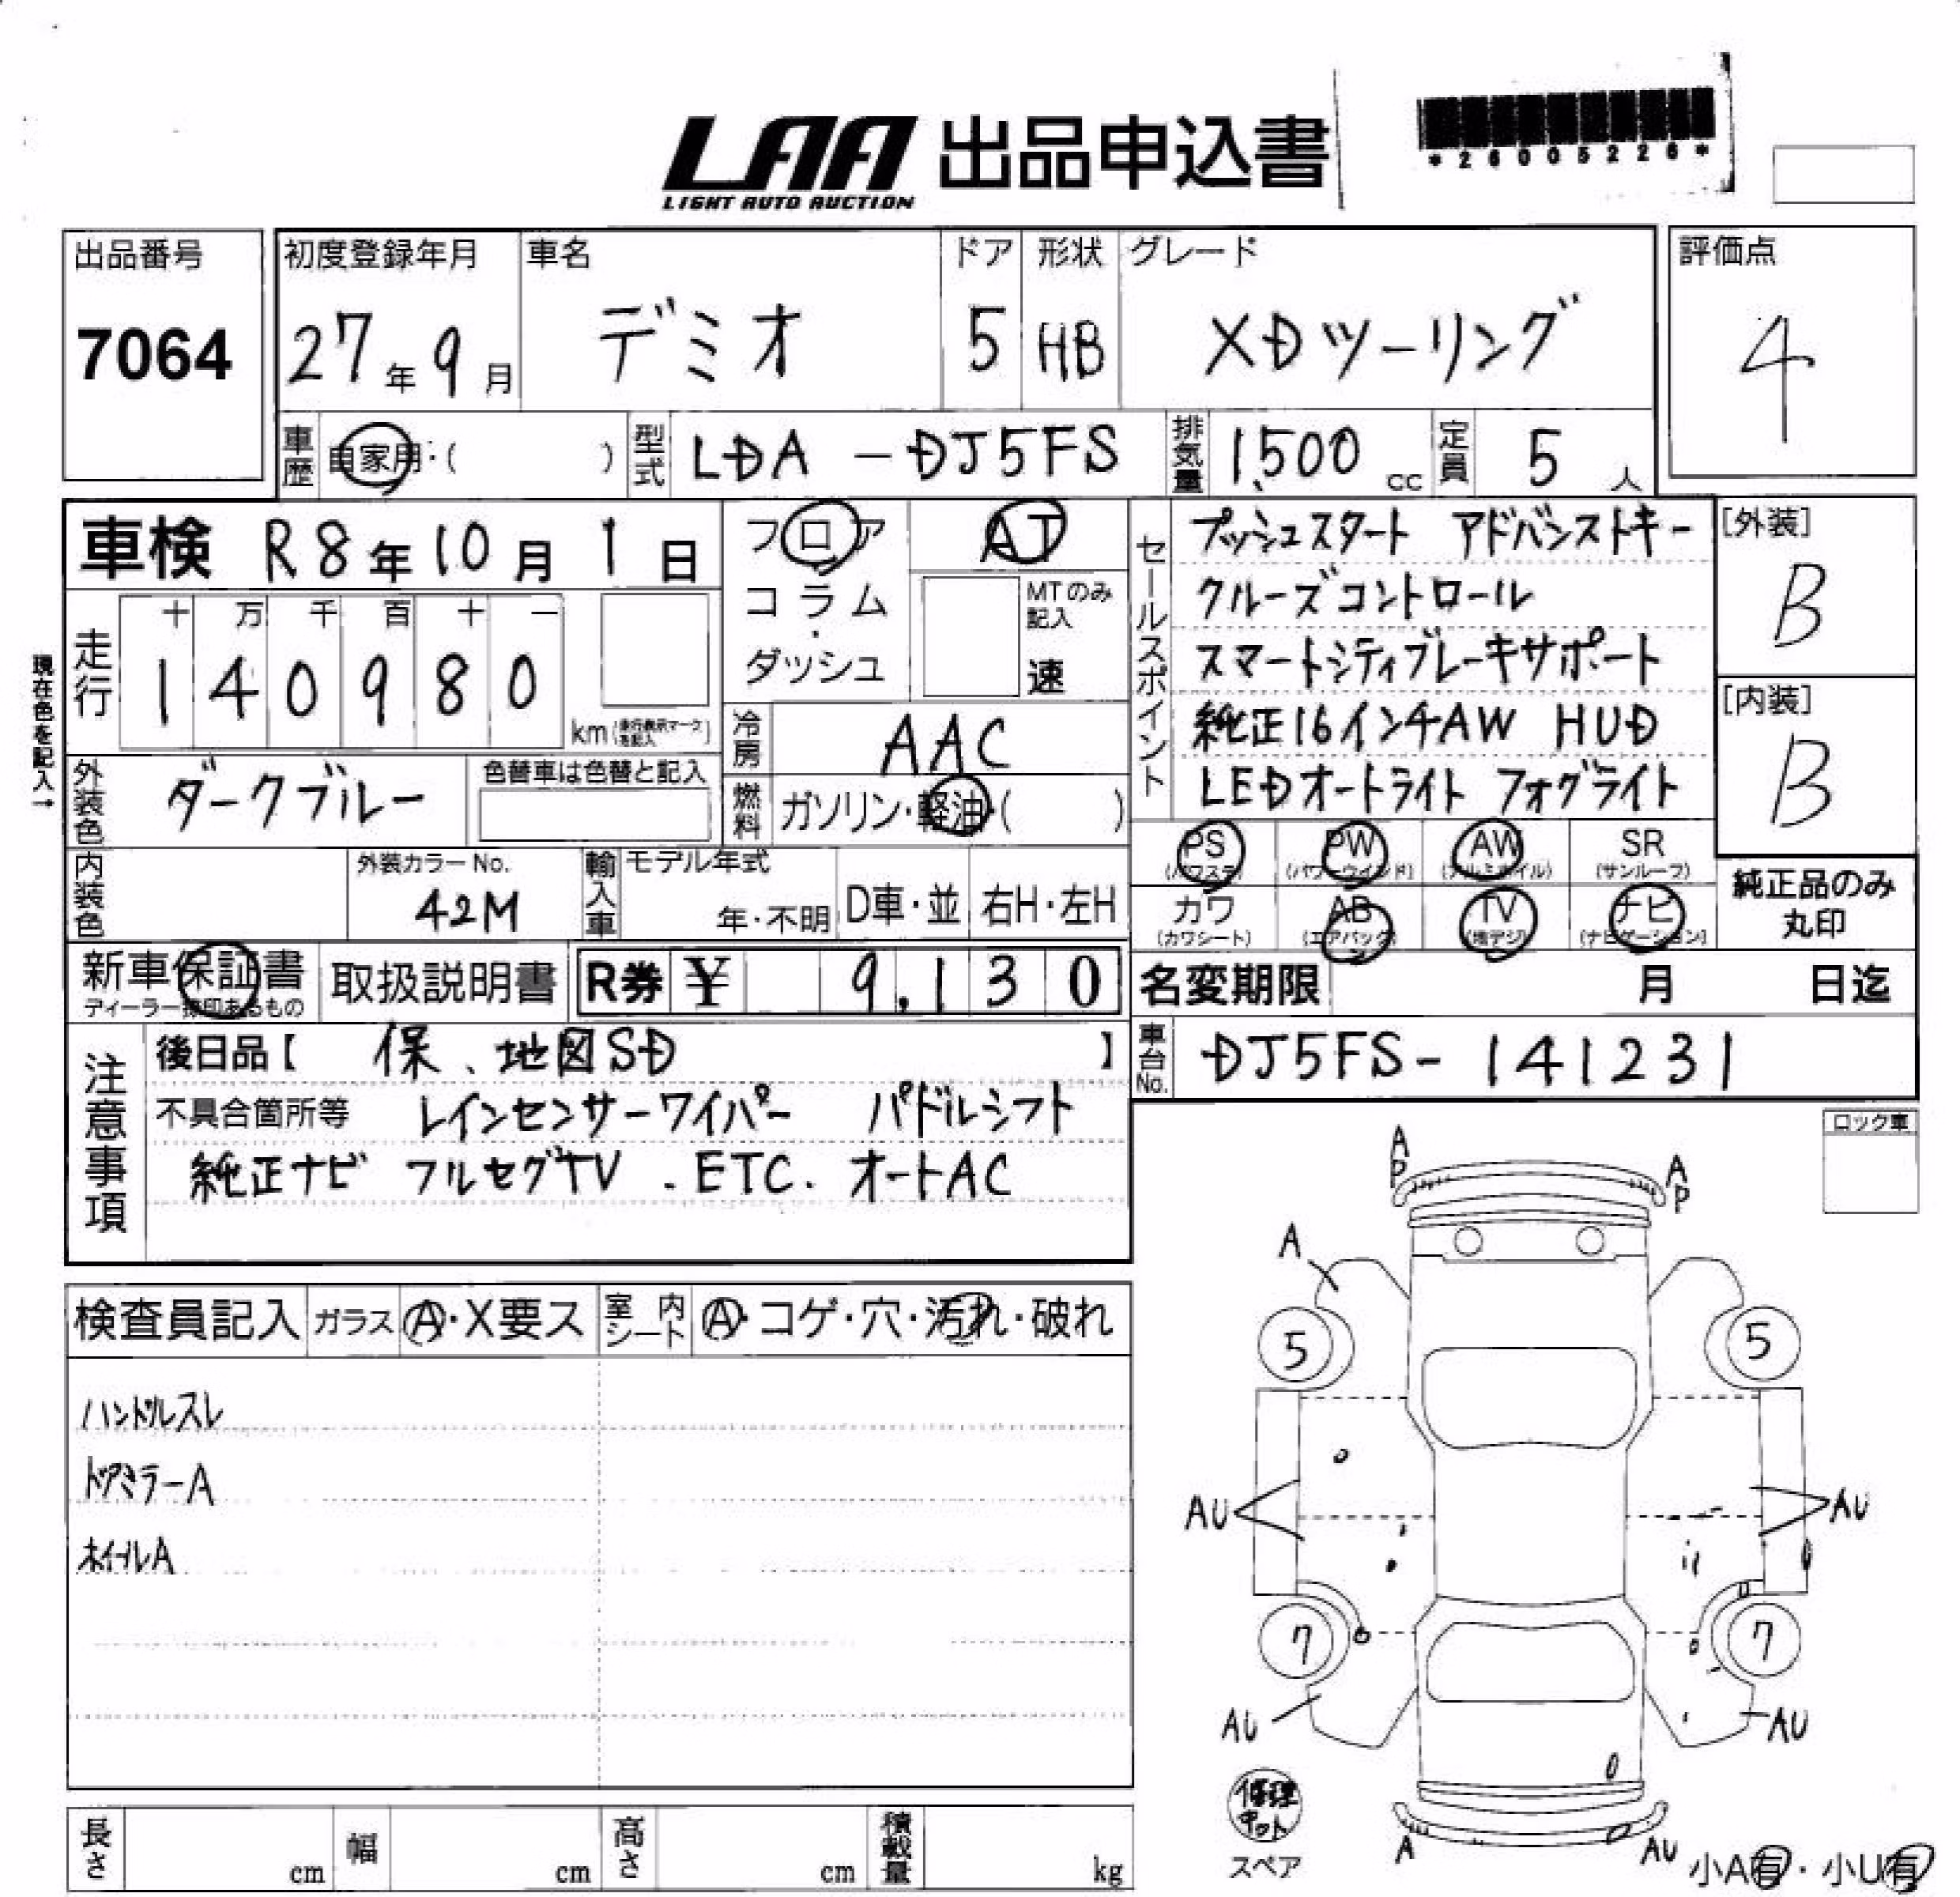 LAA 出品申込書
LIGHT AUTO AUCTION
*26005226*
出品番号
7064
初度登録年月
27年9月
車名
デミオ
ドア
5
形状
HB
グレード
XDツーリング
評価点
4
車歴 自家用・( )
型式 LDA-DJ5FS
排気量 1,500 cc
定員 5 人
車検 R8年10月1日
フロア
コラム
・
ダッシュ
AT
MTのみ記入
速
セールスポイント
プッシュスタート アドバンストキー
クルーズコントロール
スマートシティブレーキサポート
純正16インチAW HUD
LEDオートライト フォグライト
[外装]
B
[内装]
B
現在色を記入→
走行
十 万 千 百 十 一
1 4 0 9 8 0
km(走行表示マークを記入)
冷房 AAC
燃料 ガソリン・軽油・( )
外装色 ダークブルー
色替車は色替と記入
内装色
外装カラーNo.
42M
輸入車
モデル年式
年・不明
D車・並
右H・左H
PS (パワステ)
PW (パワーウインド)
AW (アルミホイル)
SR (サンルーフ)
カワ (カワシート)
AB (エアバック)
TV (地デジ)
ナビ (ナビゲーション)
純正品のみ
丸印
新車保証書
ディーラー捺印あるもの
取扱説明書
R券 ¥ 9,130
名変期限 月 日迄
注意事項
後日品【 保、地図SD 】
不具合箇所等 レインセンサーワイパー パドルシフト
純正ナビ フルセグTV . ETC. オートAC
車台No. DJ5FS-141231
ロック車
検査員記入
ガラス A・X要ス
室内シート A・コゲ・穴・汚れ・破れ
ハンドルスレ
ドアミラーA
ホイールA
A
P
A
P
A
5
5
AU
AU
7
7
AU
AU
修理
キット
スペア
A
AU
小A有・小U有
長さ cm
幅 cm
高さ cm
積載量 kg